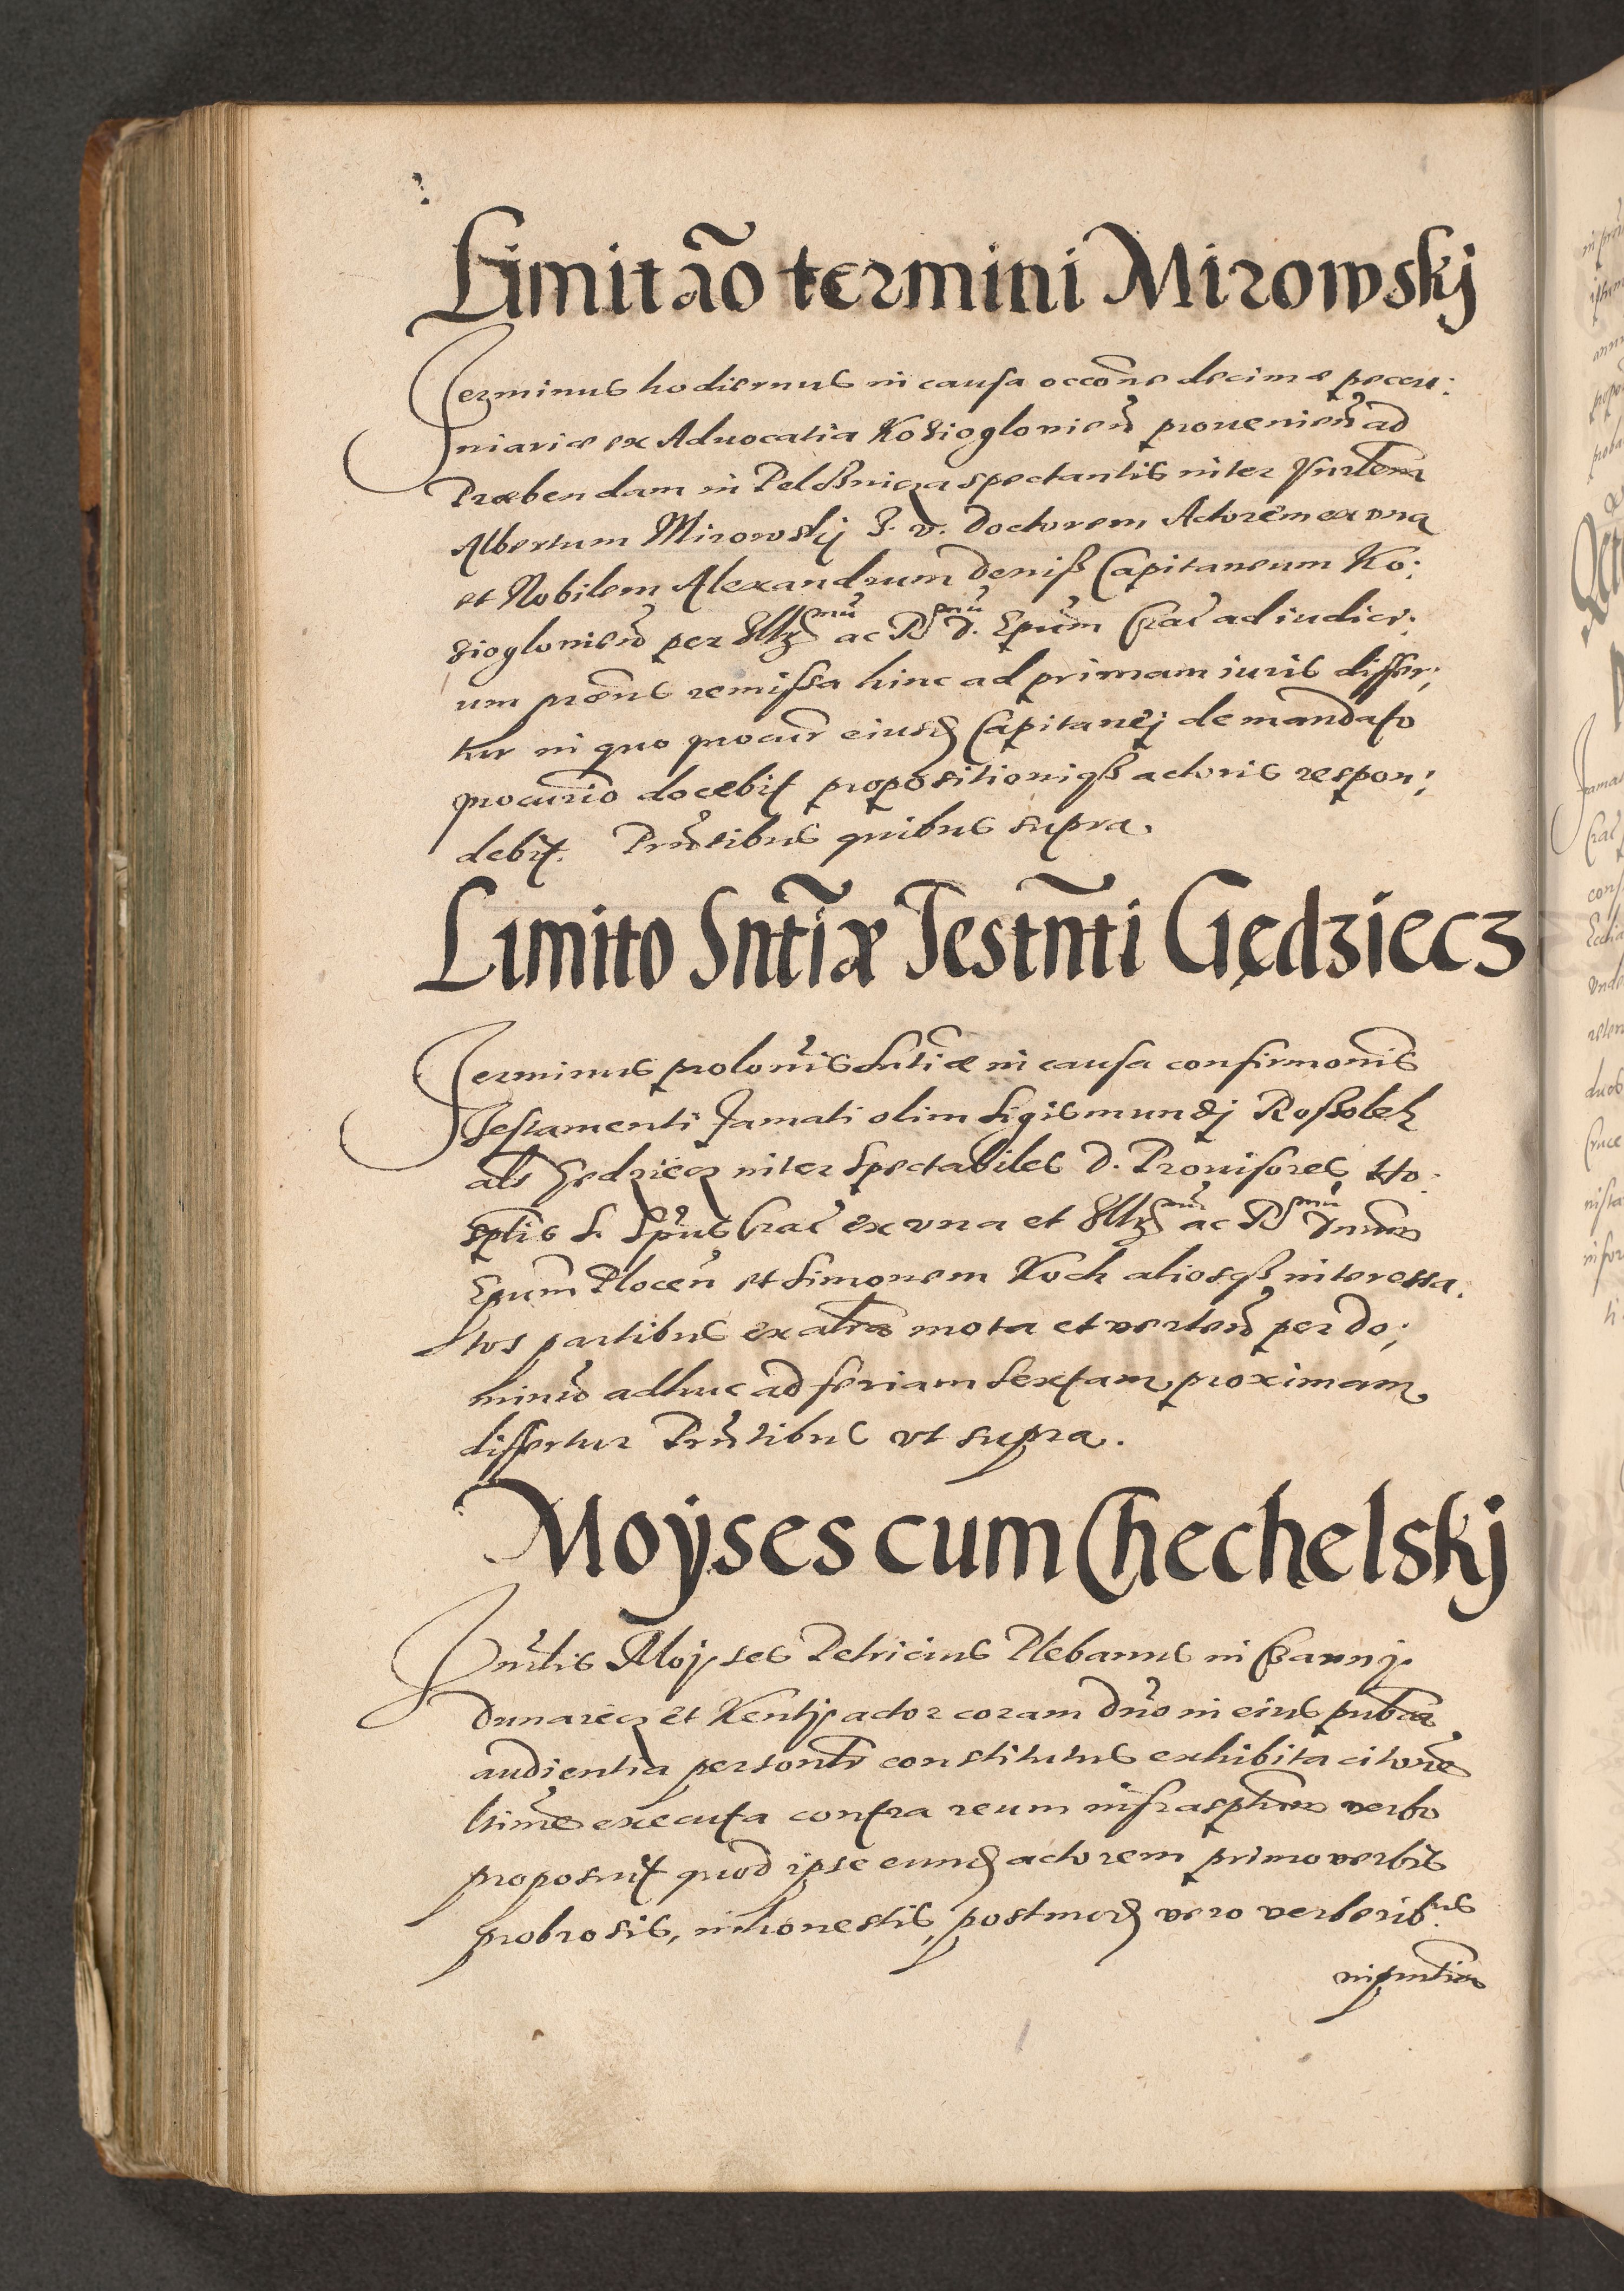 Limitão termini Mirowskj
Terminus hodiernus in causa occõne decimæ pecu:
niariæ ex Aduocatia Kozioglovien̄ provenien̄ ad
Præbendam in Pelcznicza spectantis inter
Albertum Mirowskj J. V. Doctorem Actorem ex una
et Nobilem Alexandrum Deniß Capitaneum Ko:
zioglovien̄ per Illr̄mũ ac R̄mũ D. Epũm Crac̄ ad iudici:
um pr̄ens remissa hinc ad primam iuris differ:
tur in quo procur̄ eiusd Capitanej de mandato
procur̄io docebit propositioniqß actoris respon:
debit. Pr̄ntibus quibus supra.
Limito Sntĩæ Testm̃ti Giędziecz
Terminus prolon̄is Sntĩæ in causa confirmõnis
Testamenti famati olim Sigismundj Roßolek
als Gedziecz inter Spectabiles D. Prouisores Ho:
sptlis S. Spũs Crac̄ ex una et Illr̄mũ ac R̄mũ Dnum
Epum Plocen̄ et Simonem Koch aliosqß interessa:
tos partibus ex altra mota et verten̄ per do:
minũ adhuc ad feriam Sextam proximam
differtur Pr̄ntibus ut supra.
Moÿses cum Chechelskj
Hon̄rlis Moÿses Petricius Plebanus in
Dunaiecz et Kentÿ actor coram Dño in eius publca
audientia personlr̄ constitutus exhibita citõne
ltime executa contra reum infrasptum verbo
proposuit quod ipse eund actorem primo verbis
probrosis, inhonestis, postmod vero verberibus